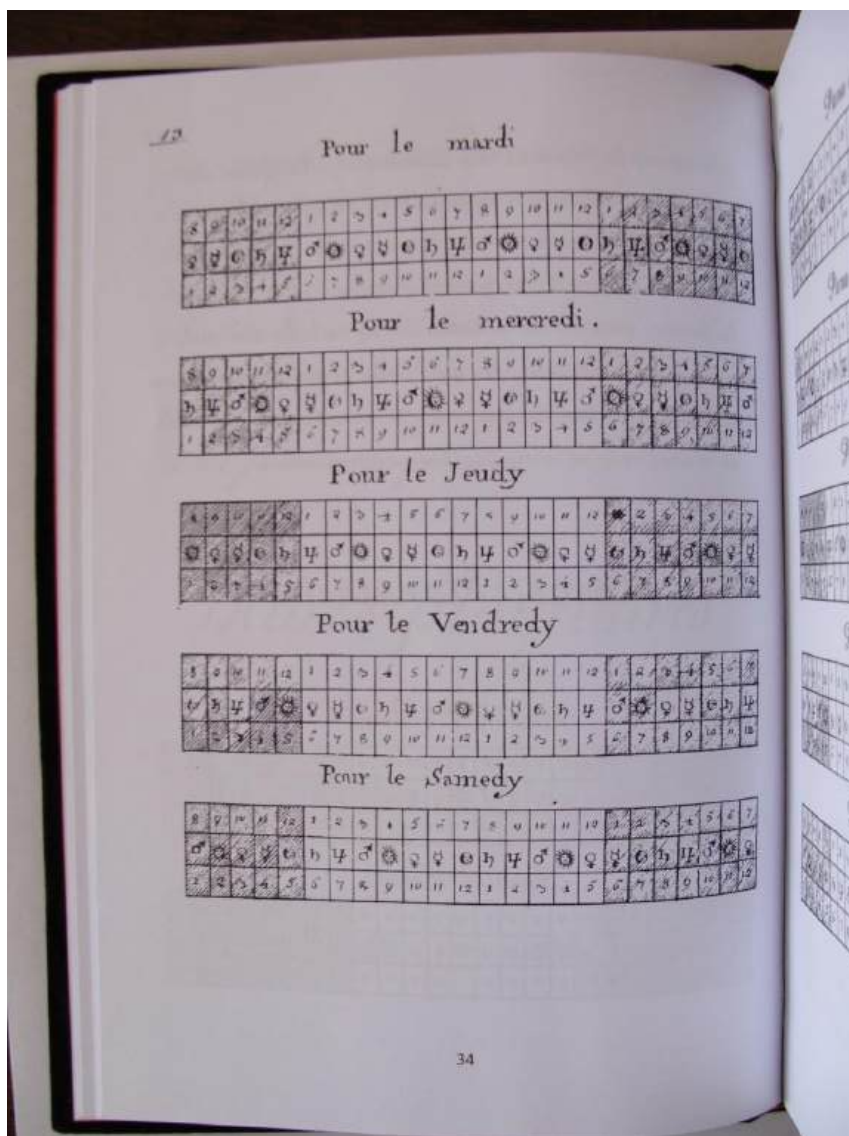 13
Pour le mardi
8 9 10 11 12 1 2 3 4 5 6 7 8 9 10 11 12 1 2 3 4 5 6 7
♀ ☿ ☾ ♄ ♃ ♂ ☉ ♀ ☿ ☾ ♄ ♃ ♂ ☉ ♀ ☿ ☾ ♄ ♃ ♂ ☉ ♀ ☿ ☾
1 2 3 4 5 6 7 8 9 10 11 12 1 2 3 4 5 6 7 8 9 10 11 12
Pour le mercredi.
8 9 10 11 12 1 2 3 4 5 6 7 8 9 10 11 12 1 2 3 4 5 6 7
♄ ♃ ♂ ☉ ♀ ☿ ☾ ♄ ♃ ♂ ☉ ♀ ☿ ☾ ♄ ♃ ♂ ☉ ♀ ☿ ☾ ♄ ♃ ♂
1 2 3 4 5 6 7 8 9 10 11 12 1 2 3 4 5 6 7 8 9 10 11 12
Pour le Jeudy
8 9 10 11 12 1 2 3 4 5 6 7 8 9 10 11 12 2 3 4 5 6 7
☉ ♀ ☿ ☾ ♄ ♃ ♂ ☉ ♀ ☿ ☾ ♄ ♃ ♂ ☉ ♀ ☿ ☾ ♄ ♃ ♂ ☉ ♀ ☿
1 2 3 4 5 6 7 8 9 10 11 12 1 2 3 4 5 6 7 8 9 10 11 12
Pour le Vendredy
8 9 10 11 12 1 2 3 4 5 6 7 8 9 10 11 12 1 2 3 4 5 6 7
☾ ♄ ♃ ♂ ☉ ♀ ☿ ☾ ♄ ♃ ♂ ☉ ♀ ☿ ☾ ♄ ♃ ♂ ☉ ♀ ☿ ☾ ♄ ♃
1 2 3 4 5 6 7 8 9 10 11 12 1 2 3 4 5 6 7 8 9 10 11 12
Pour le Samedy
8 9 10 11 12 1 2 3 4 5 6 7 8 9 10 11 12 1 2 3 4 5 6 7
♂ ☉ ♀ ☿ ☾ ♄ ♃ ♂ ☉ ♀ ☿ ☾ ♄ ♃ ♂ ☉ ♀ ☿ ☾ ♄ ♃ ♂ ☉ ♀
1 2 3 4 5 6 7 8 9 10 11 12 1 2 3 4 5 6 7 8 9 10 11 12
34